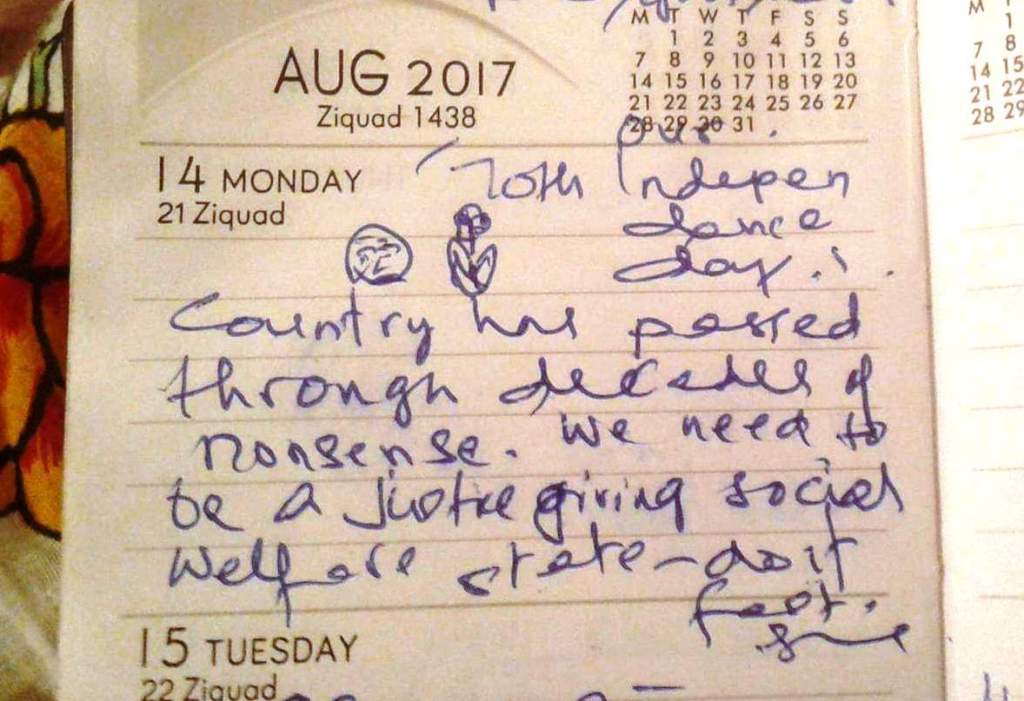 M T W T F S S
1 2 3 4 5 6
7 8 9 10 11 12 13
14 15 16 17 18 19 20
21 22 23 24 25 26 27
28 29 30 31
AUG 2017
Ziquad 1438
our
14 MONDAY
70th Indepen
21 Ziquad
dance
day
Country has passed
through decades of
nonsense. We need to
be a justice giving social
welfare state - do it
fast.
15 TUESDAY
22 Ziquad
M
1
7 8
14 15
21 22
28 29